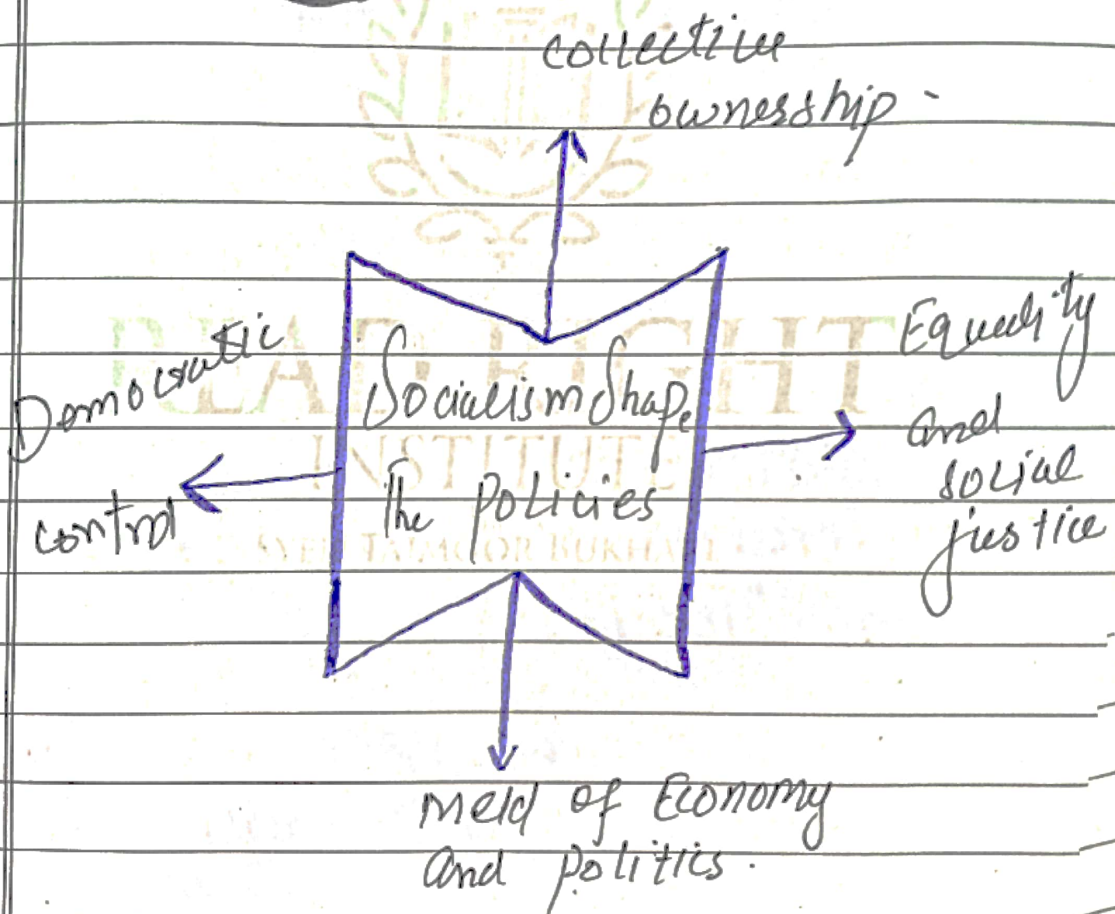 collective
ownership.
Democratic
control
Socialism Shape
The policies
Equality
and
social
justice
Meld of Economy
and politics.
READ RIGHT
INSTITUTE